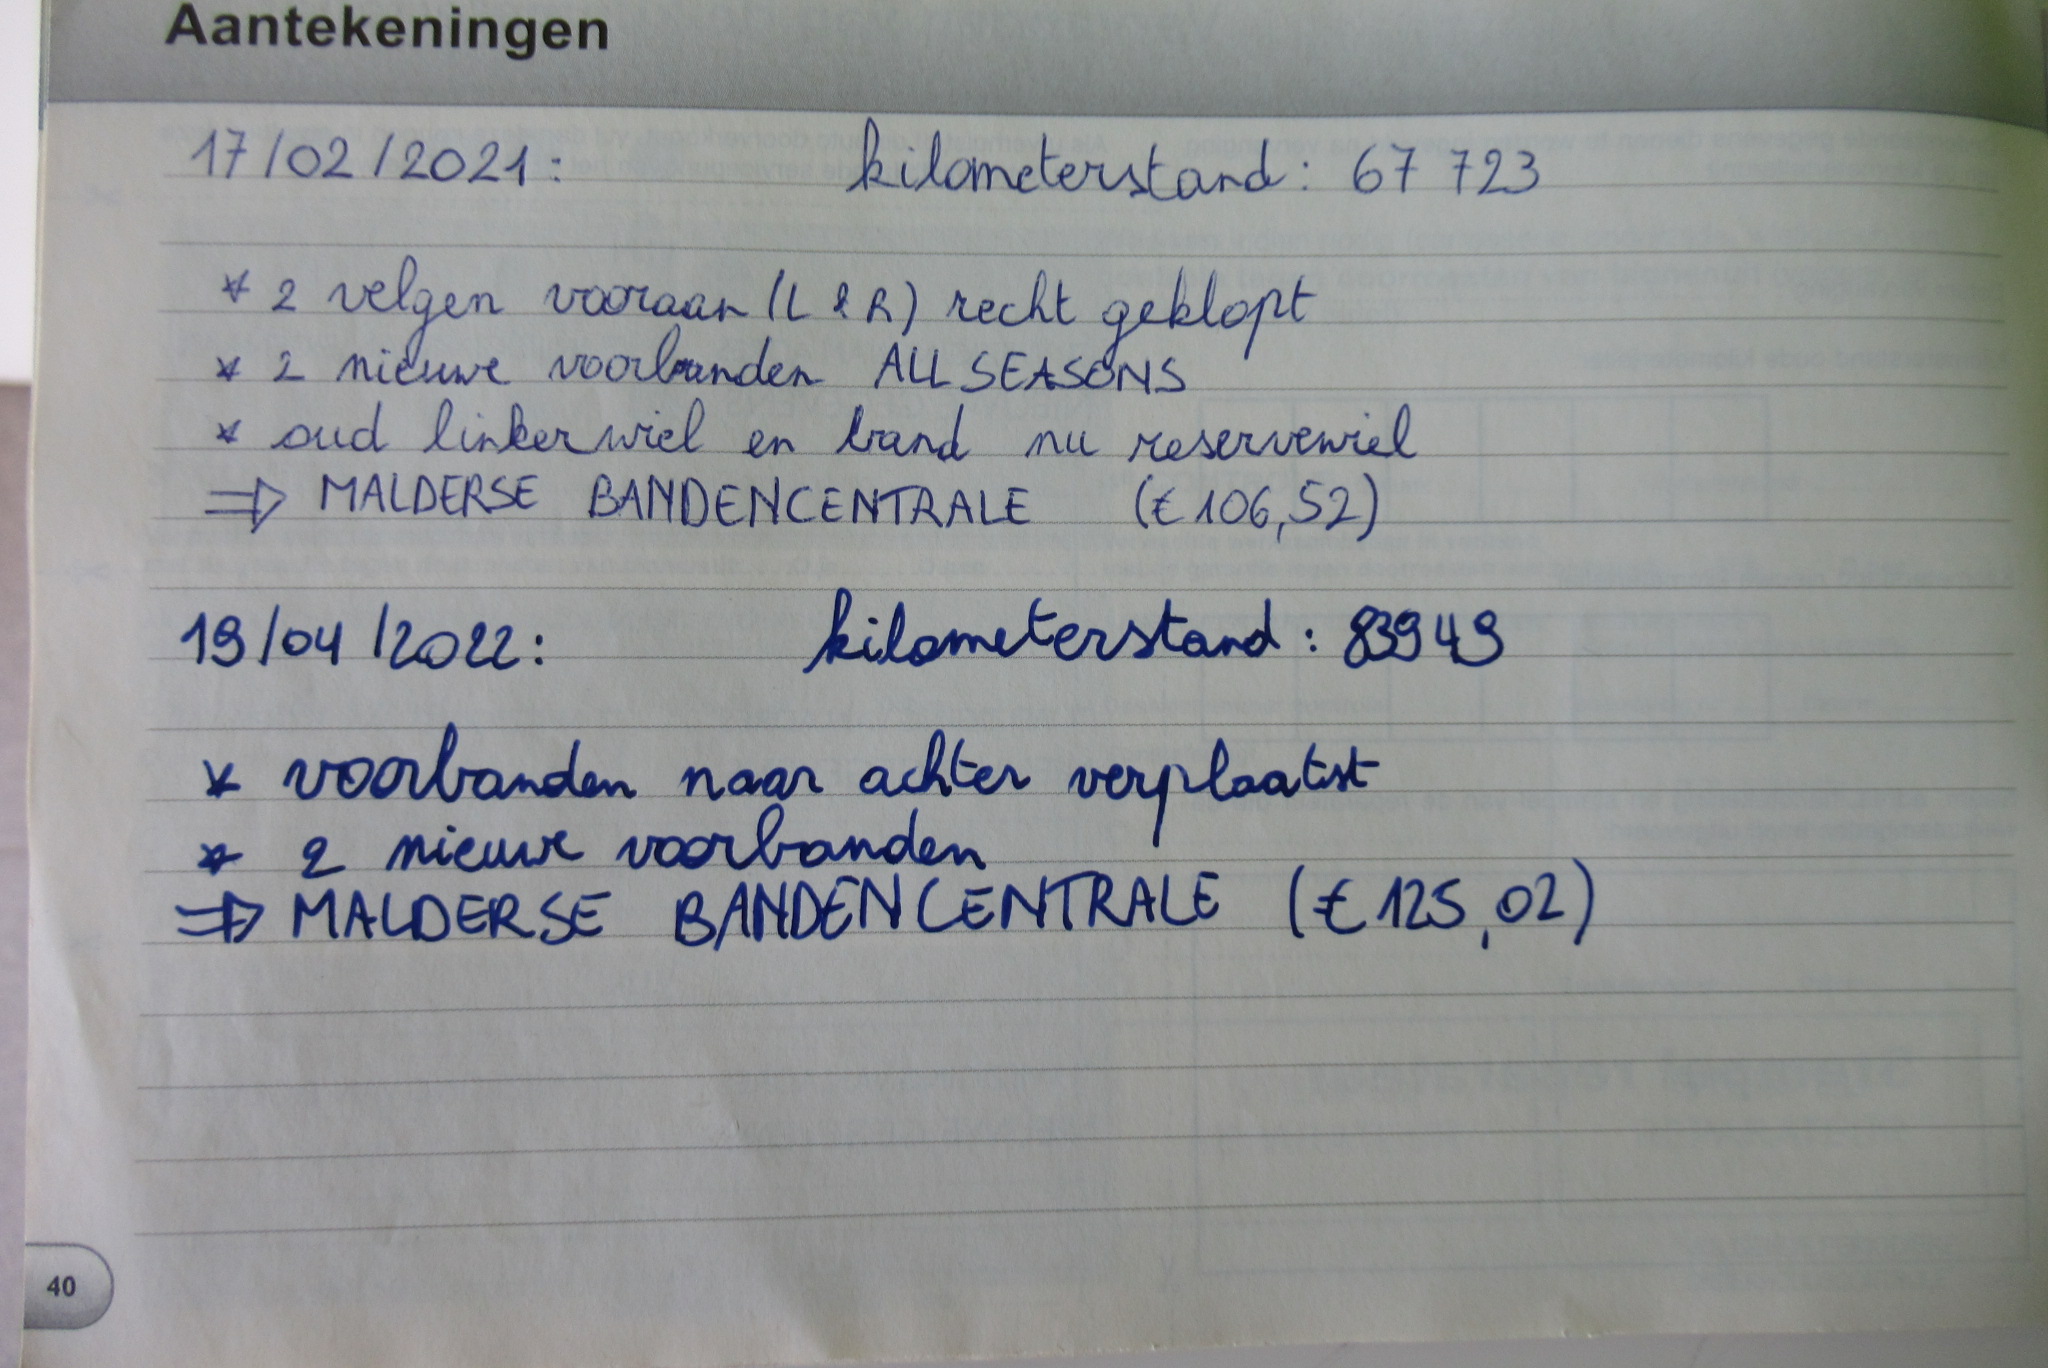 Aantekeningen
17/02/2021: kilometerstand: 67 723
* 2 velgen vooraan (L & R) recht geklopt
* 2 nieuwe voorbanden ALL SEASONS
* oud linkerwiel en band nu reservewiel
⇒ MALDERSE BANDENCENTRALE (€ 106,52)
19/04/2022: kilometerstand: 83949
* voorbanden naar achter verplaatst
* 2 nieuwe voorbanden
⇒ MALDERSE BANDENCENTRALE (€ 125,02)
40